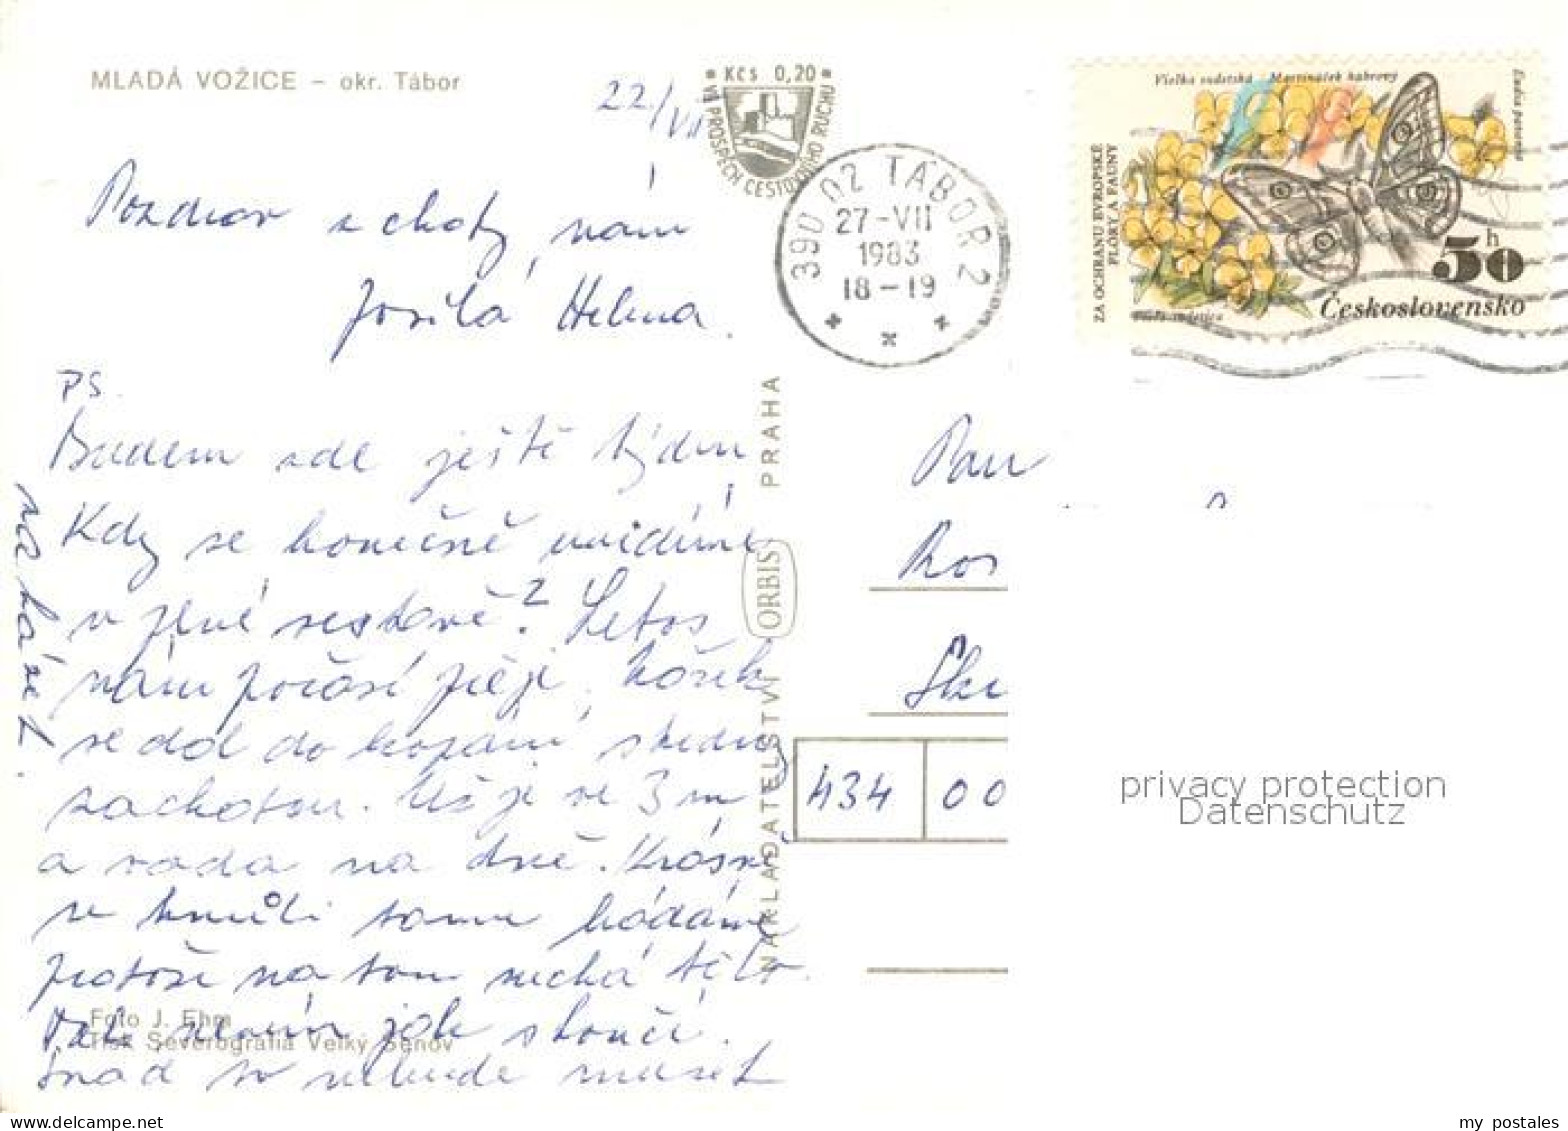 MLADÁ VOŽICE – okr. Tábor
22/VII
Kčs 0,20
VE PROSPĚCH CESTOVNÍHO RUCHU
390 02 TÁBOR 2
27-VII
1983
18-19
Martináček habrový
ZA OCHRANU EVROPSKÉ
FLÓRY A FAUNY
50 h
Československo
Pozdrav z chaty nám
posílá Helena.
PS.
Budem zde ještě týden
Kdy se konečně uvidíme
v plné sestavě? Letos
nám počasí přeje,
se dal do kopání studny
za chatou. Už je ve 3 m
a voda na dně. Krásně
se kvůli tomu hádáme
protože na tom nechá tělo.
Dál nevím jak skončí.
Snad to nebude muset
NAKLADATELSTVÍ ORBIS PRAHA
Pan
Ros
434 00
Foto J. Ehm
Tisk Severografia Velký Šenov
privacy protection
Datenschutz
my postales